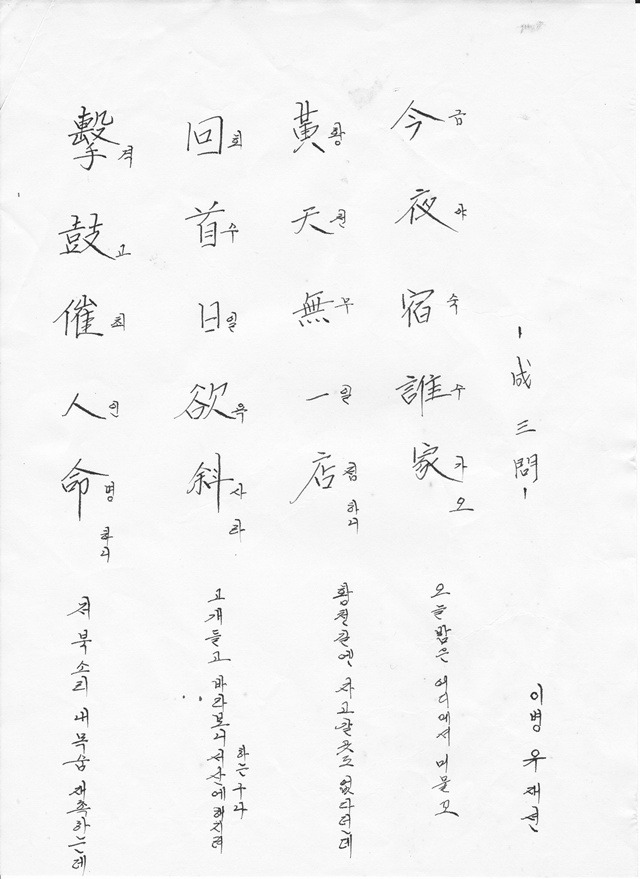 擊鼓催人命
격고최인명 하니
저 북소리 내목숨 재촉하는데
回首日欲斜
회수일욕사라
고개들고 바라보니 서산에 해지려 하는구나
黃天無一店
황천무일점 하니
황천길엔 자고갈 곳도 없다던데
今夜宿誰家
금야숙수가오
오늘밤은 어디에서 머물꼬
- 成三問 -
이병 우재선